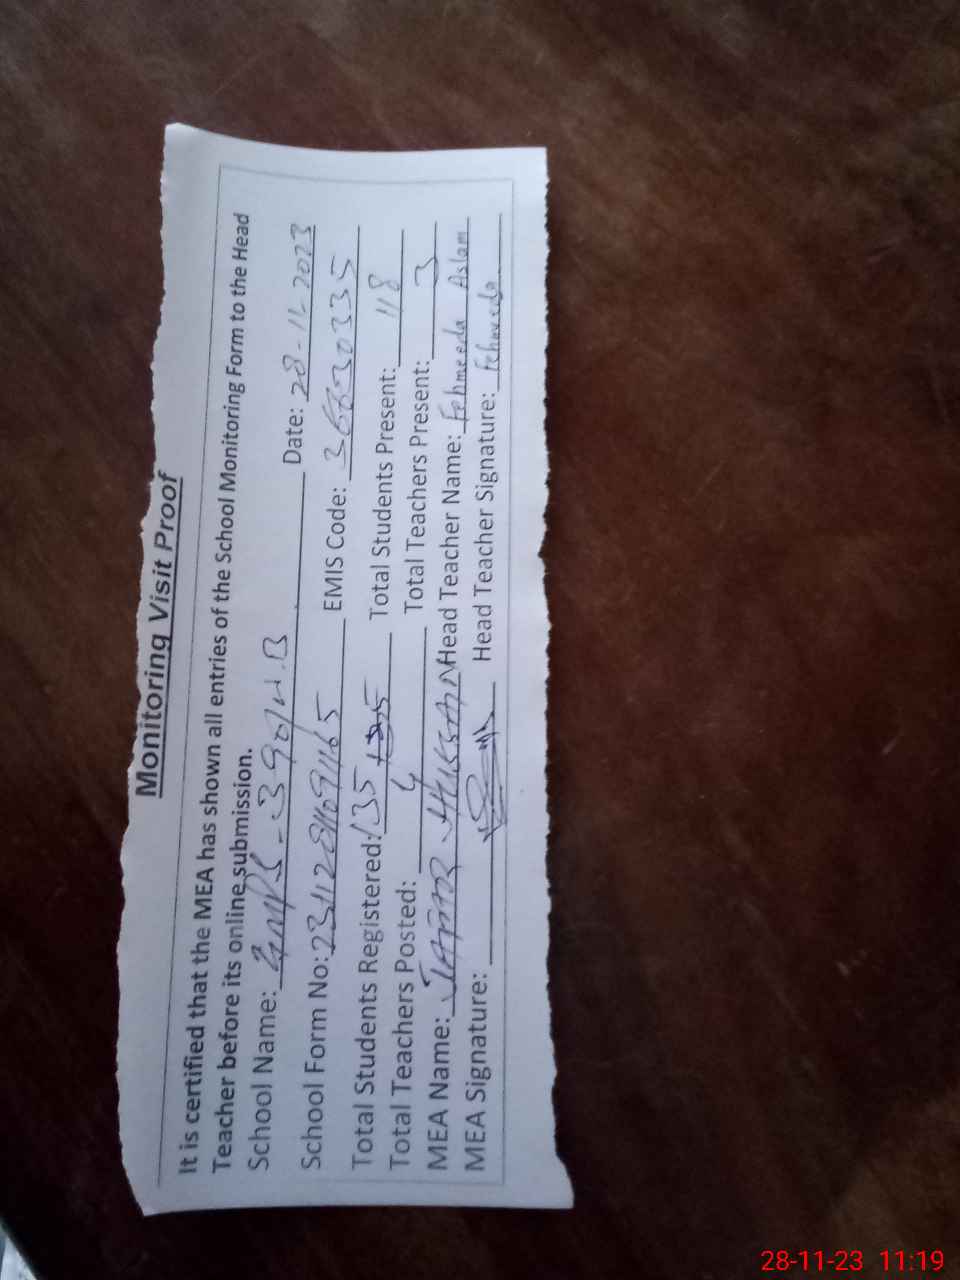 Monitoring Visit Proof
It is certified that the MEA has shown all entries of the School Monitoring Form to the Head
Teacher before its online submission.
School Name: GMPS-390/H.B Date: 28-11-2023
School Form No: EMIS Code: 36830335
Total Students Registered: 135 Total Students Present: 118
Total Teachers Posted: 4 Total Teachers Present: 3
MEA Name: HUSSAIN Head Teacher Name: Fehmeeda Aslam
MEA Signature: Head Teacher Signature: Fehmeeda
28-11-23 11:19